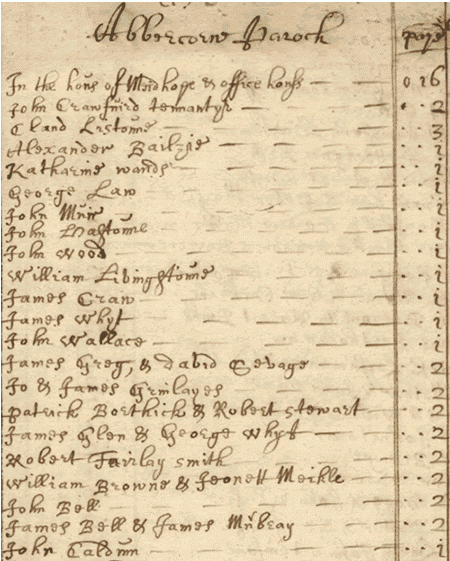 Abbercorne Paroch
In the hous of Midhope & office houss 0 16
John Crawfuird tennantys 2
Cland Listoune 3
Alexander Bailzie i
Katharine wands i
George Law i
John Muir i
John Hastoune i
John Wood i
William Livingstoune i
James Craw i
James Whyt i
John Wallace i
James Greg, & david Sevage 2
Jo & James Grinlayes 2
Patrick Borthick & Robert stewart 2
James Glen & George Whyt 2
Robert Fairlay smith 2
William Browne & Jeonett Meikle 2
John Bell 2
James Bell & James Mubray 2
John Caldun i